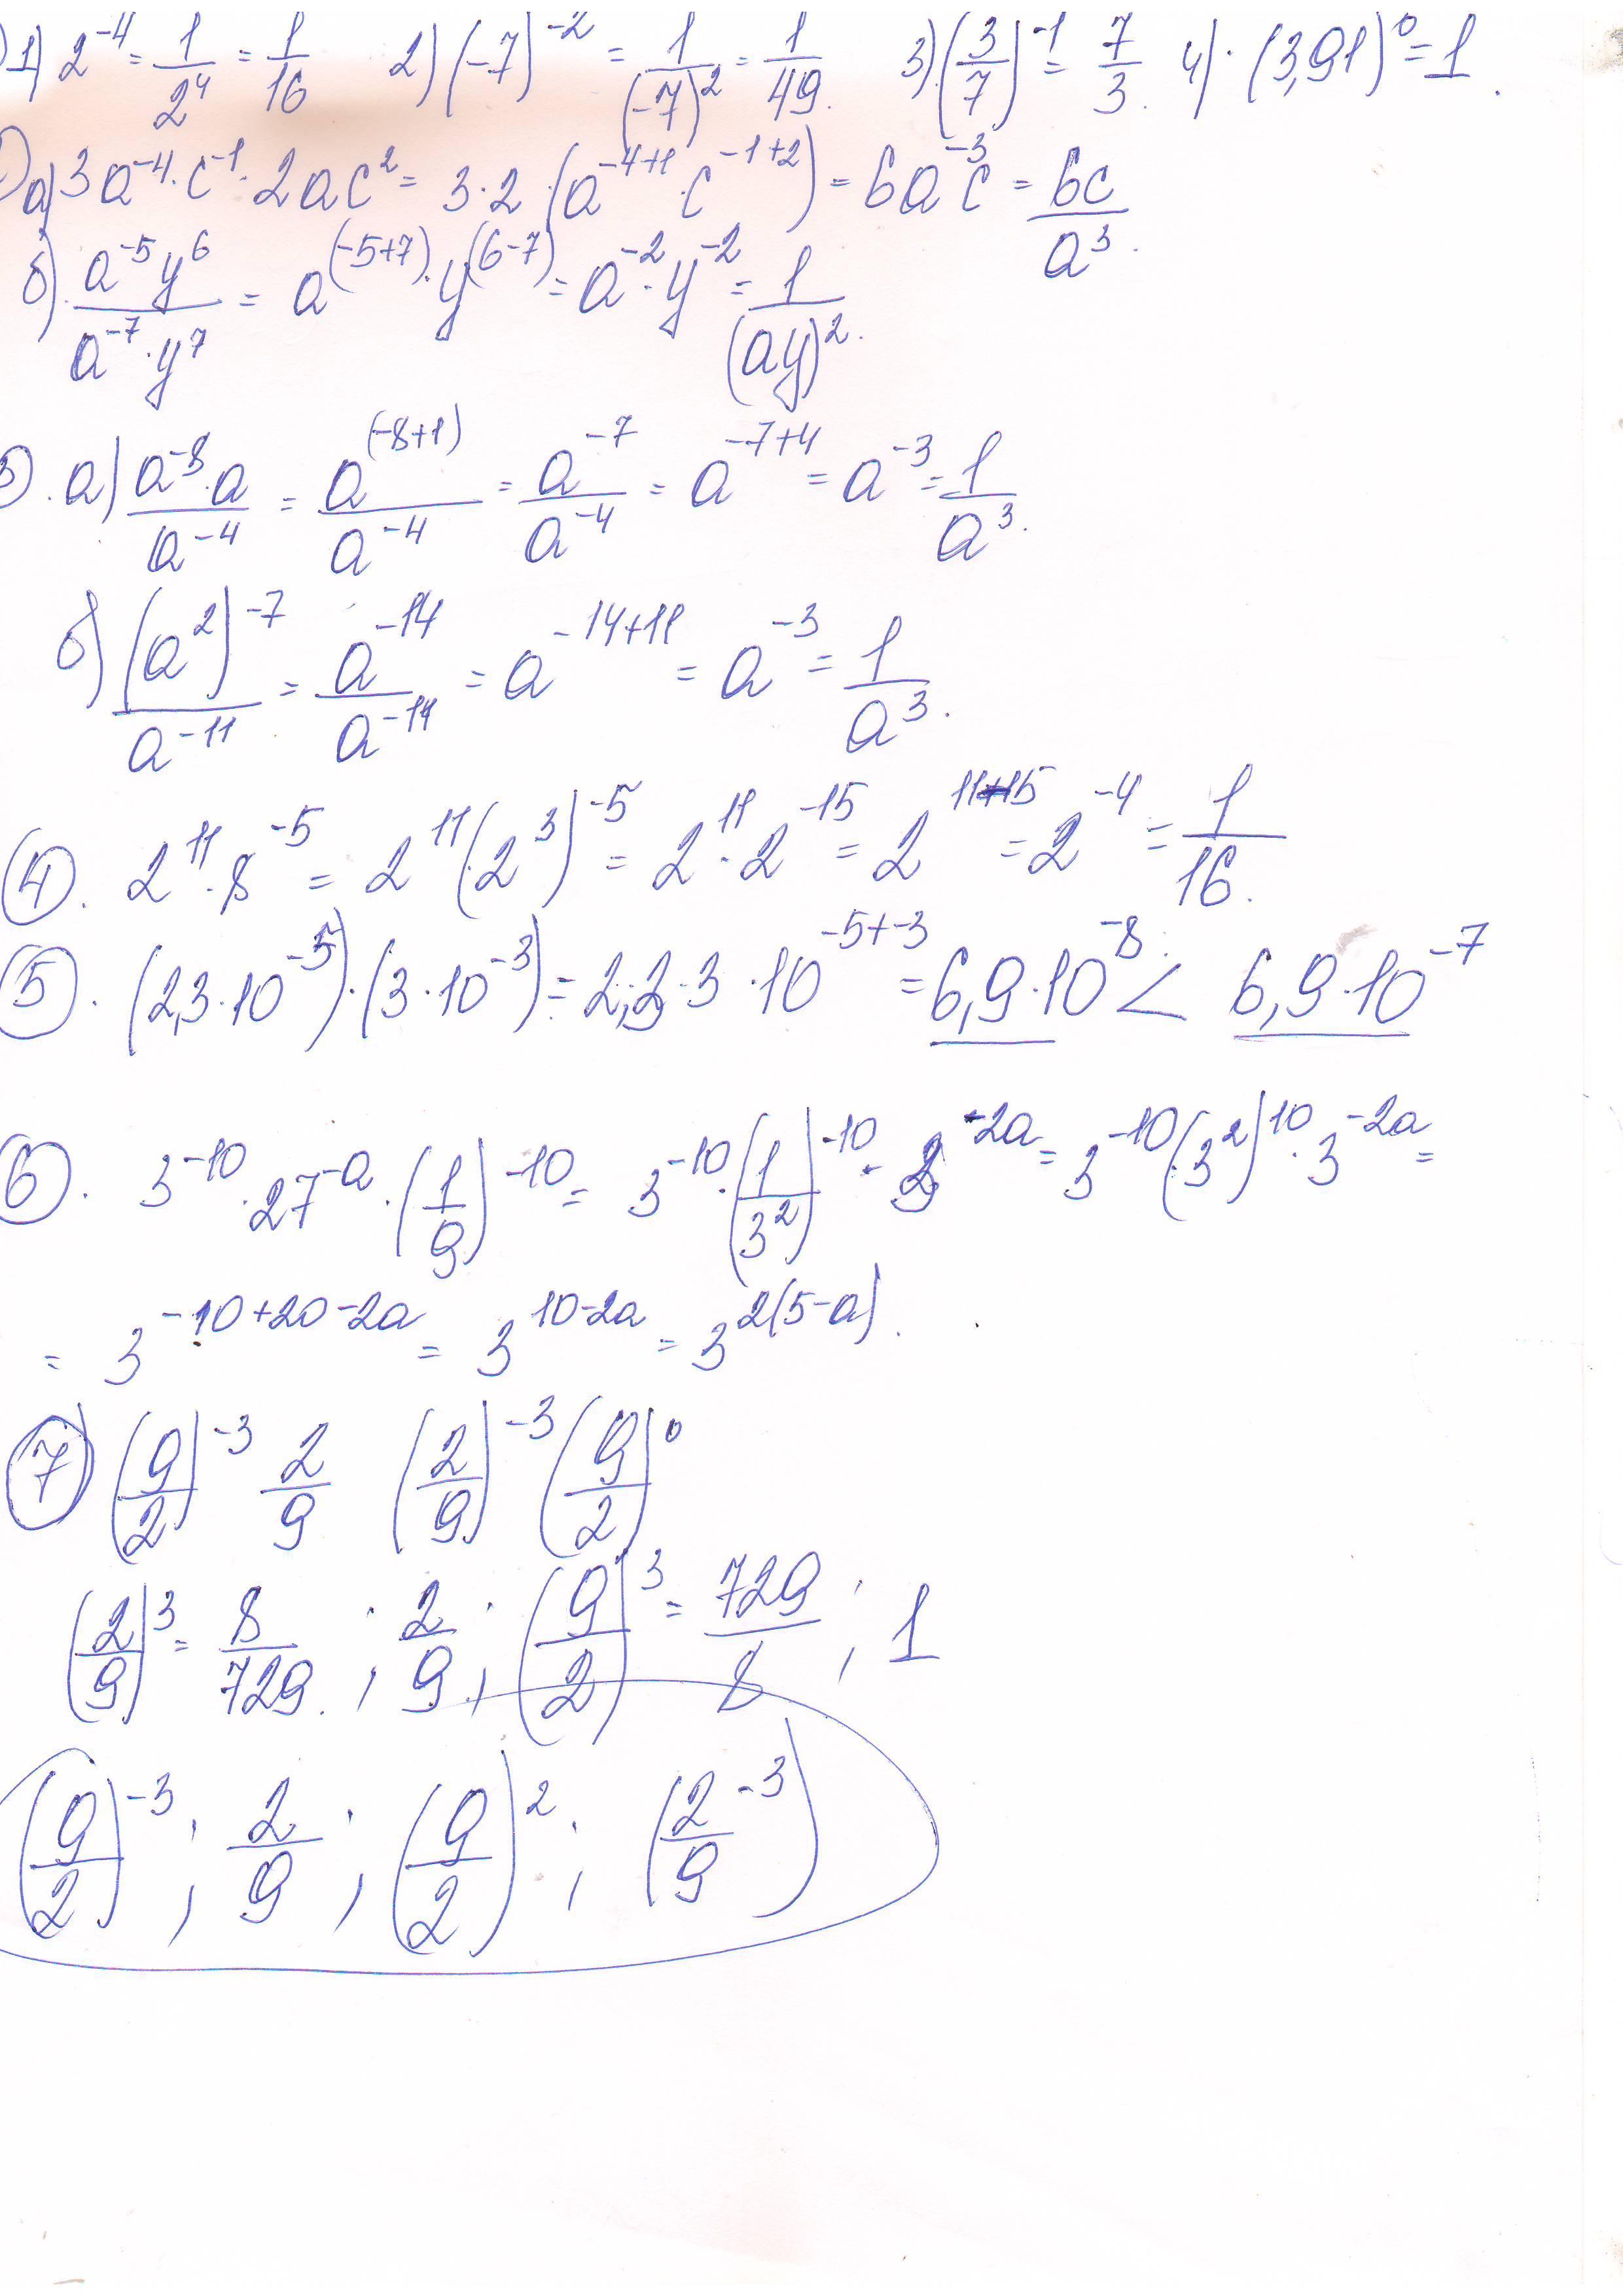 1) 2^-4 = 1/2^4 = 1/16 2) (-7)^-2 = 1/(-7)^2 = 1/49. 3) (3/7)^-1 = 7/3. 4) · (3,91)^0 = 1.
а) 3a^-4 · c^-1 · 2ac^2 = 3·2·(a^-4+1 · c^-1+2) = 6a^-3 c = 6c/a^3.
б) a^-5 y^6 / a^-7 · y^7 = a^(-5+7) · y^(6-7) = a^-2 · y^-2 = 1/(ay)^2.
3). а) a^-8 · a / a^-4 = a^(-8+1) / a^-4 = a^-7 / a^-4 = a^-7+4 = a^-3 = 1/a^3.
б) (a^2)^-7 / a^-11 = a^-14 / a^-11 = a^-14+11 = a^-3 = 1/a^3.
4). 2^11 · 8^-5 = 2^11 (2^3)^-5 = 2^11 · 2^-15 = 2^11-15 = 2^-4 = 1/16.
5). (2,3 · 10^-5) · (3 · 10^-3) = 2,3 · 3 · 10^-5+-3 = 6,9 · 10^-8 < 6,9 · 10^-7
6). 3^-10 · 27^-a · (1/9)^-10 = 3^-10 · (1/3^2)^-10 · 3^-2a = 3^-10 · (3^2)^10 · 3^-2a =
= 3^-10+20-2a = 3^10-2a = 3^2(5-a).
7) (9/2)^-3 2/9 (2/9)^-3 (9/2)^0
(2/9)^3 = 8/729. ; 2/9 ; (9/2)^3 = 729/8 ; 1
(9/2)^-3 ; 2/9 ; (9/2)^2 ; (2/9^-3)